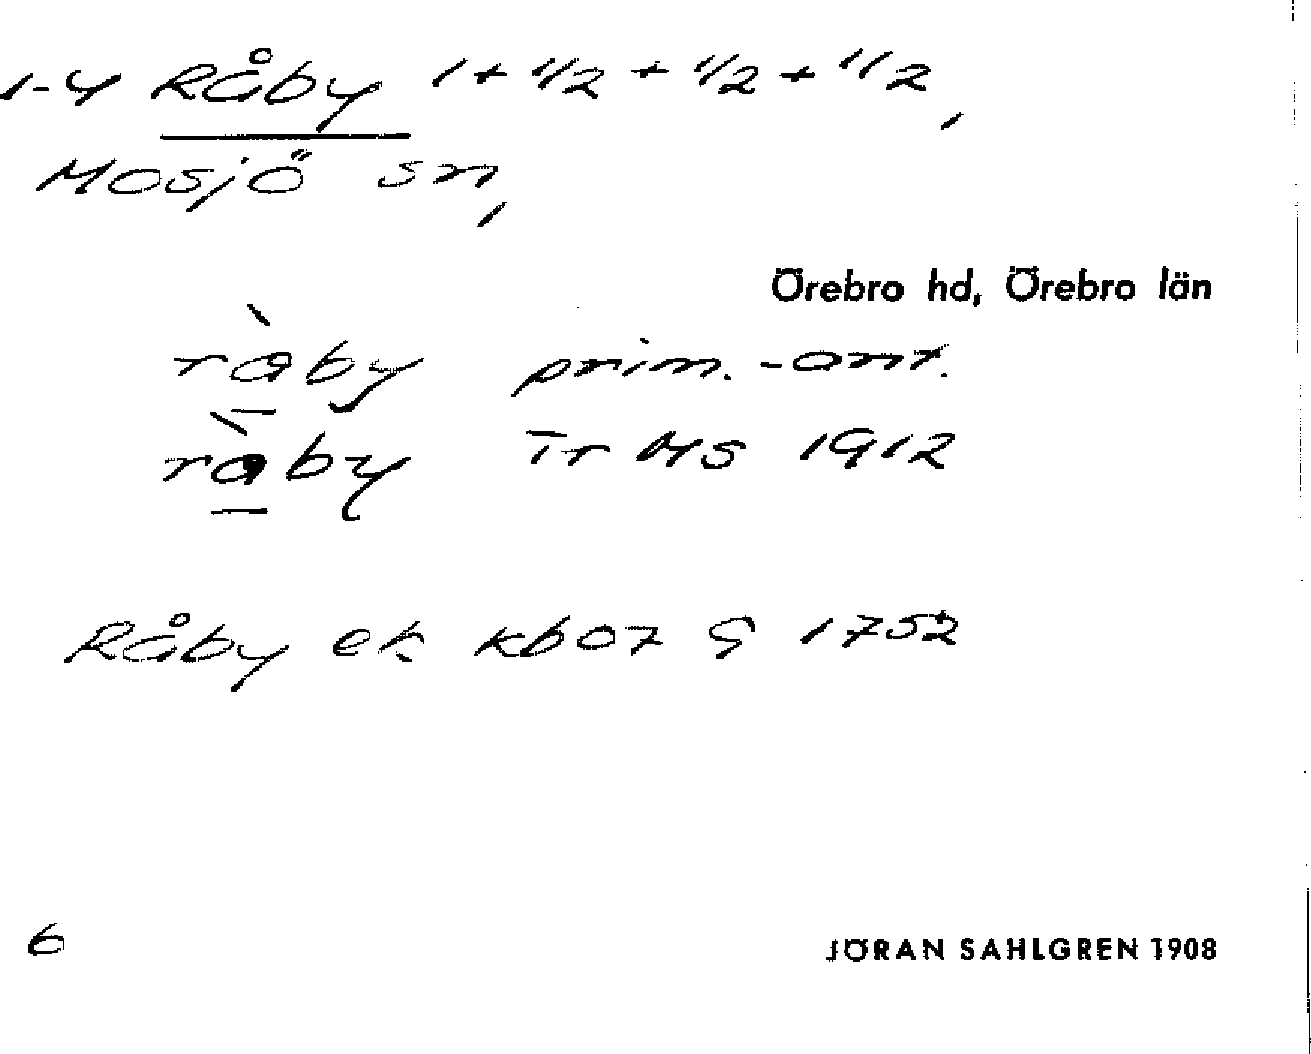 1-4 Råby 1 + 1/2 + 1/2 + 1/2,
Mosjö sn,
Örebro hd, Örebro län
ràby prim.-ant.
ràby Tr MS 1912
Råby ek kb07 G 1752
6
JÖRAN SAHLGREN 1908